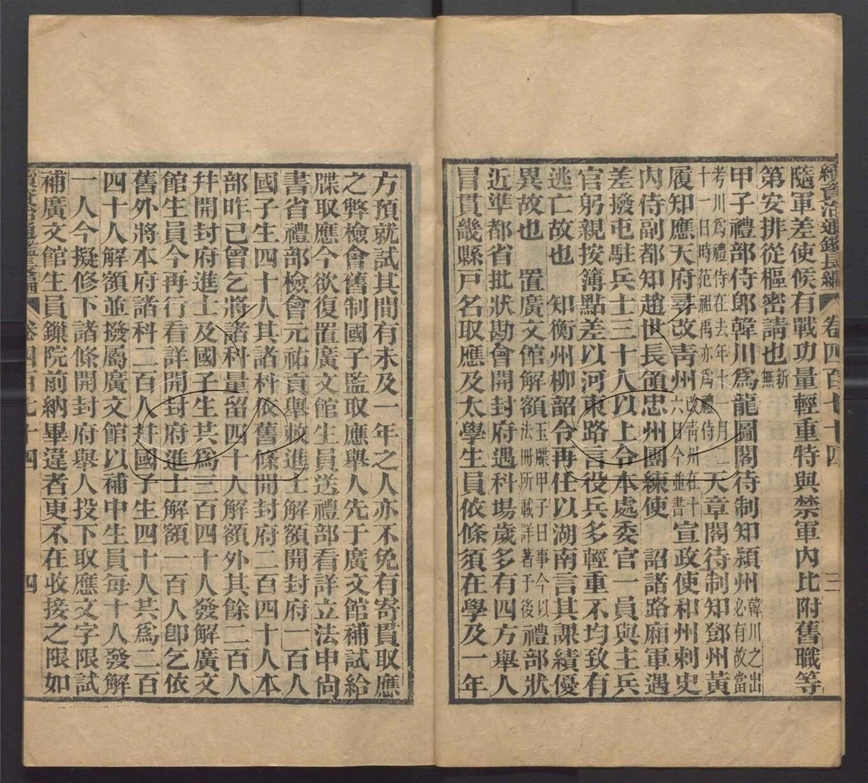 續資治通鑑長編 卷四百七十四 三
隨軍差使候有戰功量輕重特與禁軍內比附舊職等
第安排從樞密請也新無
甲子禮部侍郎韓川爲龍圖閣待制知潁州韓川之出必有故當
考川爲禮侍在去年十一月二十一日時范祖禹亦爲禮侍 天章閣待制知鄧州黃
履知應天府尋改靑州改靑州在十六日今並書 宣政使和州刺史
內侍副都知趙世長領忠州團練使 詔諸路廂軍遇
差撥屯駐兵士三十人以上令本處委官一員與主兵
官躬親按簿點差以河東路言役兵多輕重不均致有
逃亡故也 知衡州柳韶令再任以湖南言其課績優
異故也 置廣文館解額玉牒甲子日事今以法冊所載詳著于後 禮部狀
近準都省批狀勘會開封府遇科場歲多有四方舉人
冒貫畿縣戶名取應及太學生員依條須在學及一年
方預就試其間有未及一年之人亦不免有寄貫取應
之弊檢會舊制國子監取應舉人先于廣文館補試給
牒取應今欲復置廣文館生員送禮部看詳立法申尙
書省禮部檢會元祐貢舉敕進士解額開封府一百人
國子生四十人其諸科依舊條開封府二百四十人本
部昨已曾乞將諸科量留四十人解額外其餘二百人
幷開封府進士及國子生共爲三百四十人發解廣文
館生員今再行看詳開封府進士解額一百人卽乞依
舊外將本府諸科二百人幷國子生四十人共爲二百
四十人解額並撥屬廣文館以補中生員每十人發解
一人今擬修下諸條開封府舉人投下取應文字限試
補廣文館生員鎖院前納畢違者更不在收接之限如
續資治通鑑長編 卷四百七十四 四